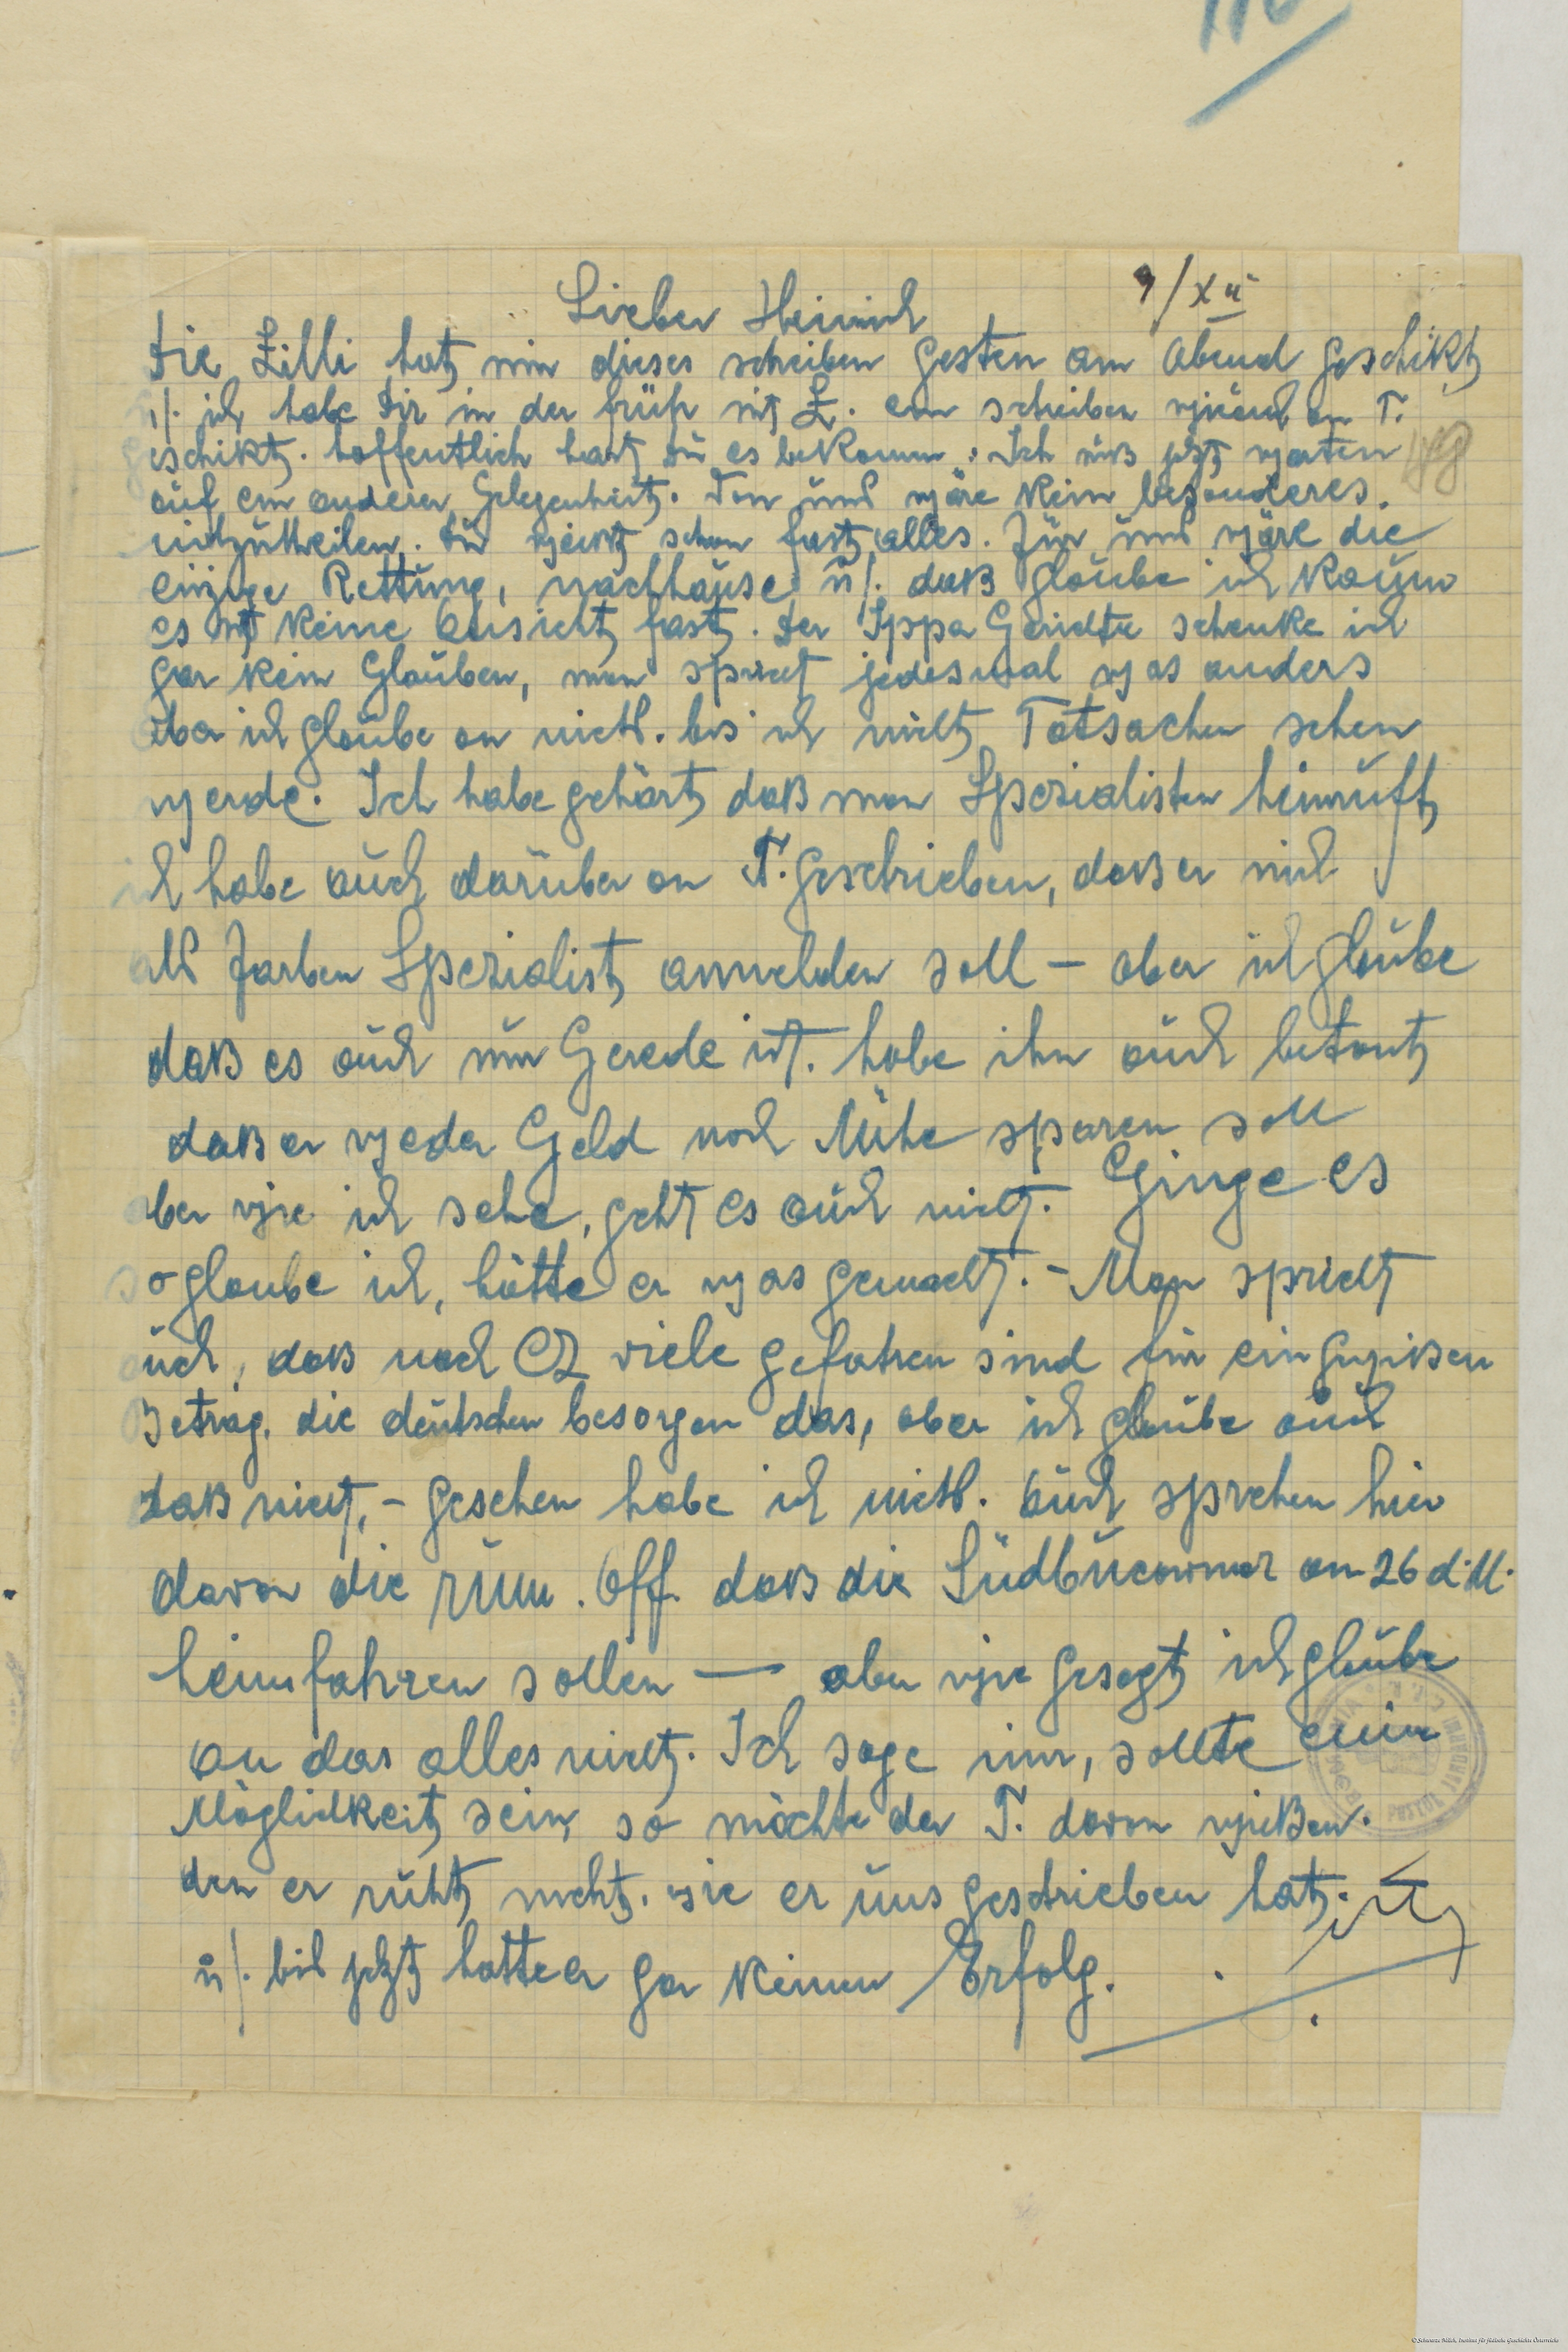 9/XII
Lieber Heinrich
Die Zilli hat mir dieses schreiben gestern am Abend geschikt
u/. ich habe dir in der früh mit Z. ein schreiben an T.
geschikt. hoffentlich hast du es bekommen. Ich muß jetzt warten
auf ein anderer Gelegenheit. Von uns wäre kein besonderes
mitzutheilen. Du weisst schon fast alles. Für uns wäre die
einzige Rettung, nachhause u/. daß glaube ich kaum
es ist keine Aussicht fast. Der Ippa Gerüchte schenke ich
gar kein Glauben, man spricht jedesmal was anders
aber ich glaube an nichts. bis ich nicht Tatsachen sehen
werde. Ich habe gehört daß man Spezialisten heimruft
ich habe auch darüber an T. geschrieben, daß er mich
als Farben Spezialist anmelden soll – aber ich glaube
daß es auch nur Gerede ist. habe ihm auch betont
daß er weder Geld noch Mühe sparen soll
aber wie ich sehe, geht es auch nicht. Ginge es
so glaube ich, hätte er was gemacht. – Man spricht
auch, daß nach CZ viele gefahren sind für ein gewißen
Betrag. die deutschen besorgen das, aber ich glaube auch
daß nicht, – gesehen habe ich nichts. Auch sprechen hier
davon die rum. Off. daß die Südbucowiner am 26 d. M.
heimfahren sollen — aber wie gesagt ich glaube
an das alles nicht. Ich sage nur, sollte eine
Möglichkeit sein, so möchte der T. davon wißen.
den er ruht nicht. wie er uns geschrieben hat.
u/. bis jetzt hatte er gar keinen Erfolg.